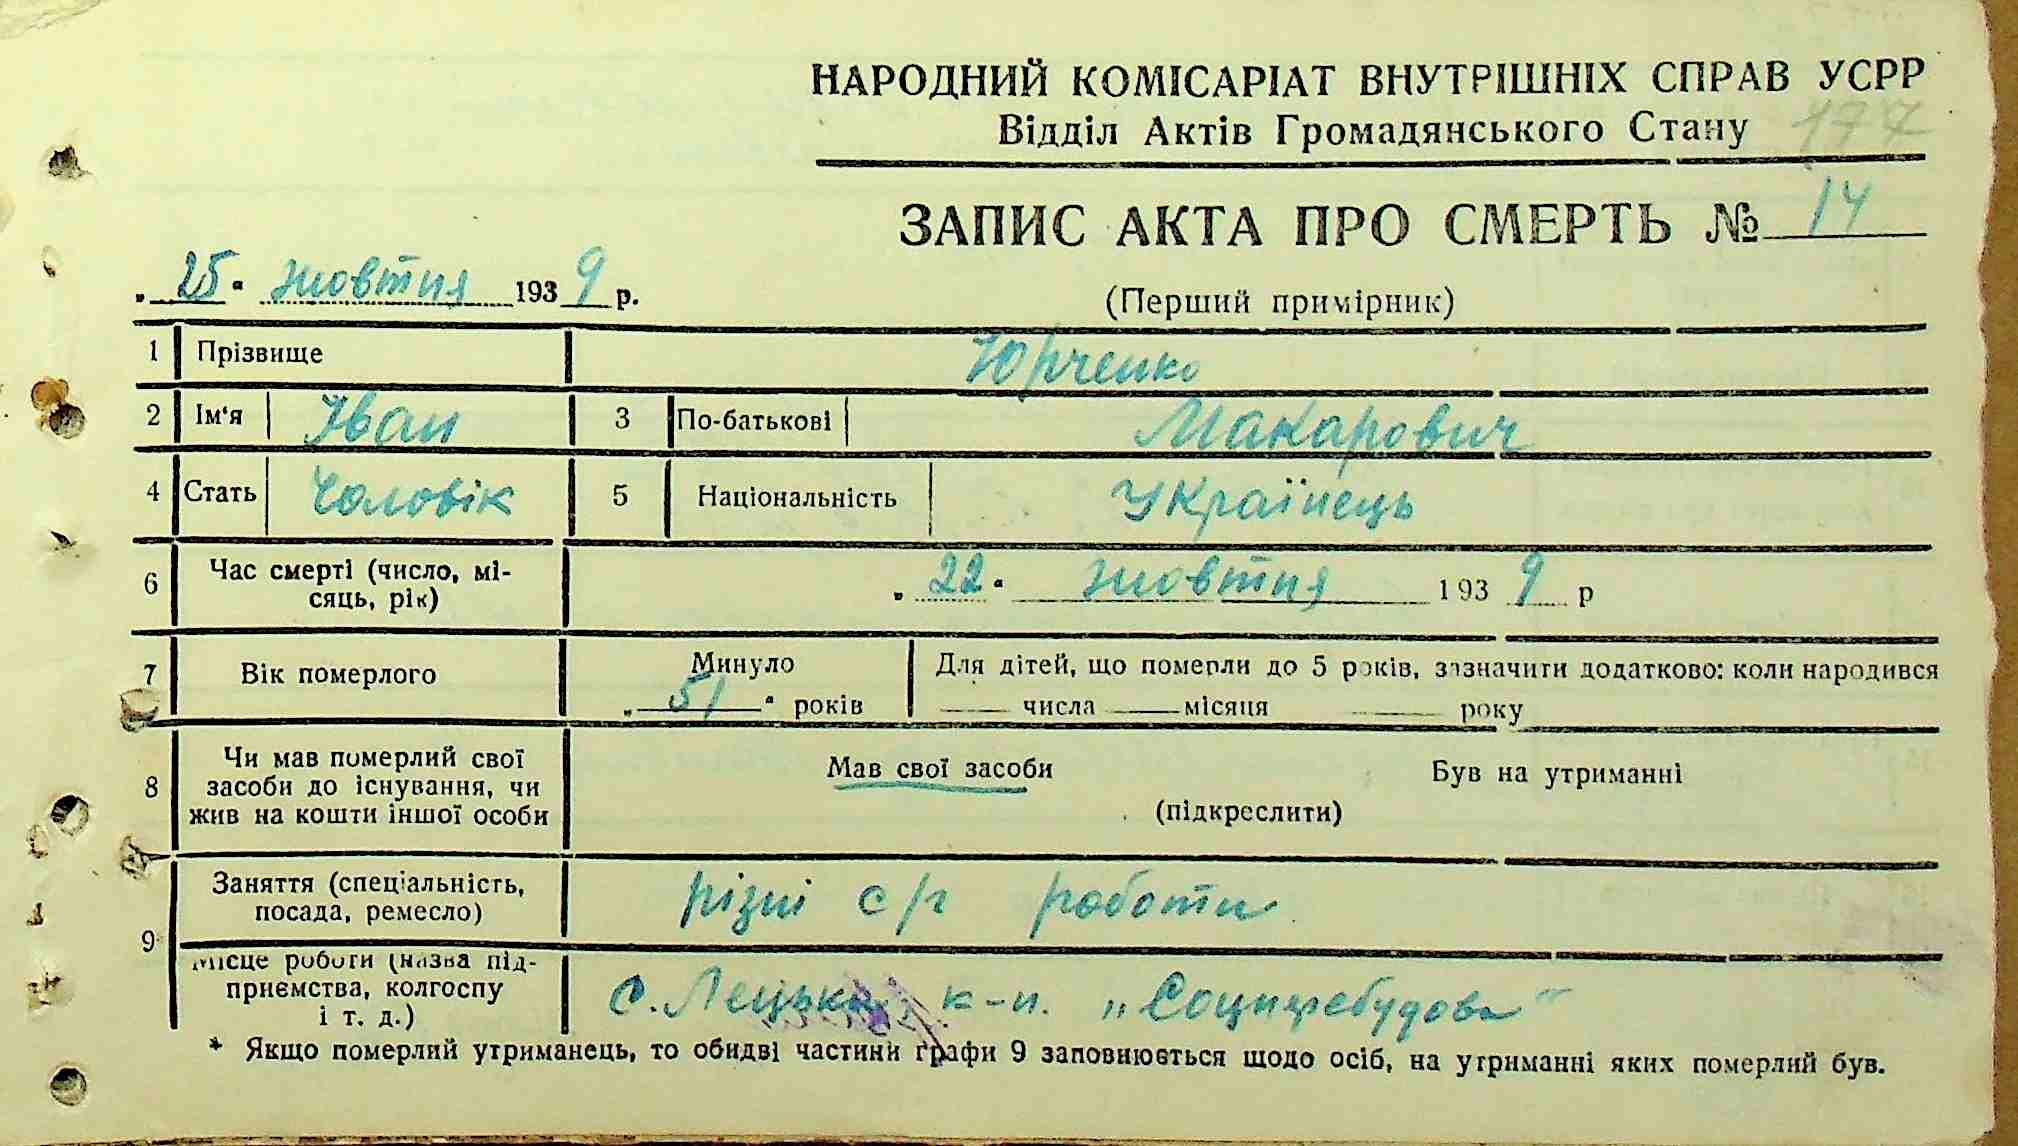 НАРОДНИЙ КОМІСАРІАТ ВНУТРІШНІХ СПРАВ УСРР
Відділ Актів Громадянського Стану 177
ЗАПИС АКТА ПРО СМЕРТЬ № 14
„25“ жовтня 1939 р.
(Перший примірник)
1 Прізвище Юрченко
2 Ім‘я Іван 3 По-батькові Макарович
4 Стать Чоловік 5 Національність Українець
6 Час смерті (число, мі-
сяць, рік) „22“ жовтня 1939 р
7 Вік померлого Минуло „51“ років Для дітей, що померли до 5 років, зазначити додатково: коли народився
числа місяця року
8 Чи мав померлий свої
засоби до існування, чи
жив на кошти іншої особи
Мав свої засоби Був на утриманні
(підкреслити)
9 Заняття (спеціальність,
посада, ремесло) різні с/г роботи
Місце роботи (назва під-
приємства, колгоспу
і т. д.) с. Лецьки, к-п. „Соцперебудова“
* Якщо померлий утриманець, то обидві частини графи 9 заповнюється щодо осіб, на утриманні яких померлий був.